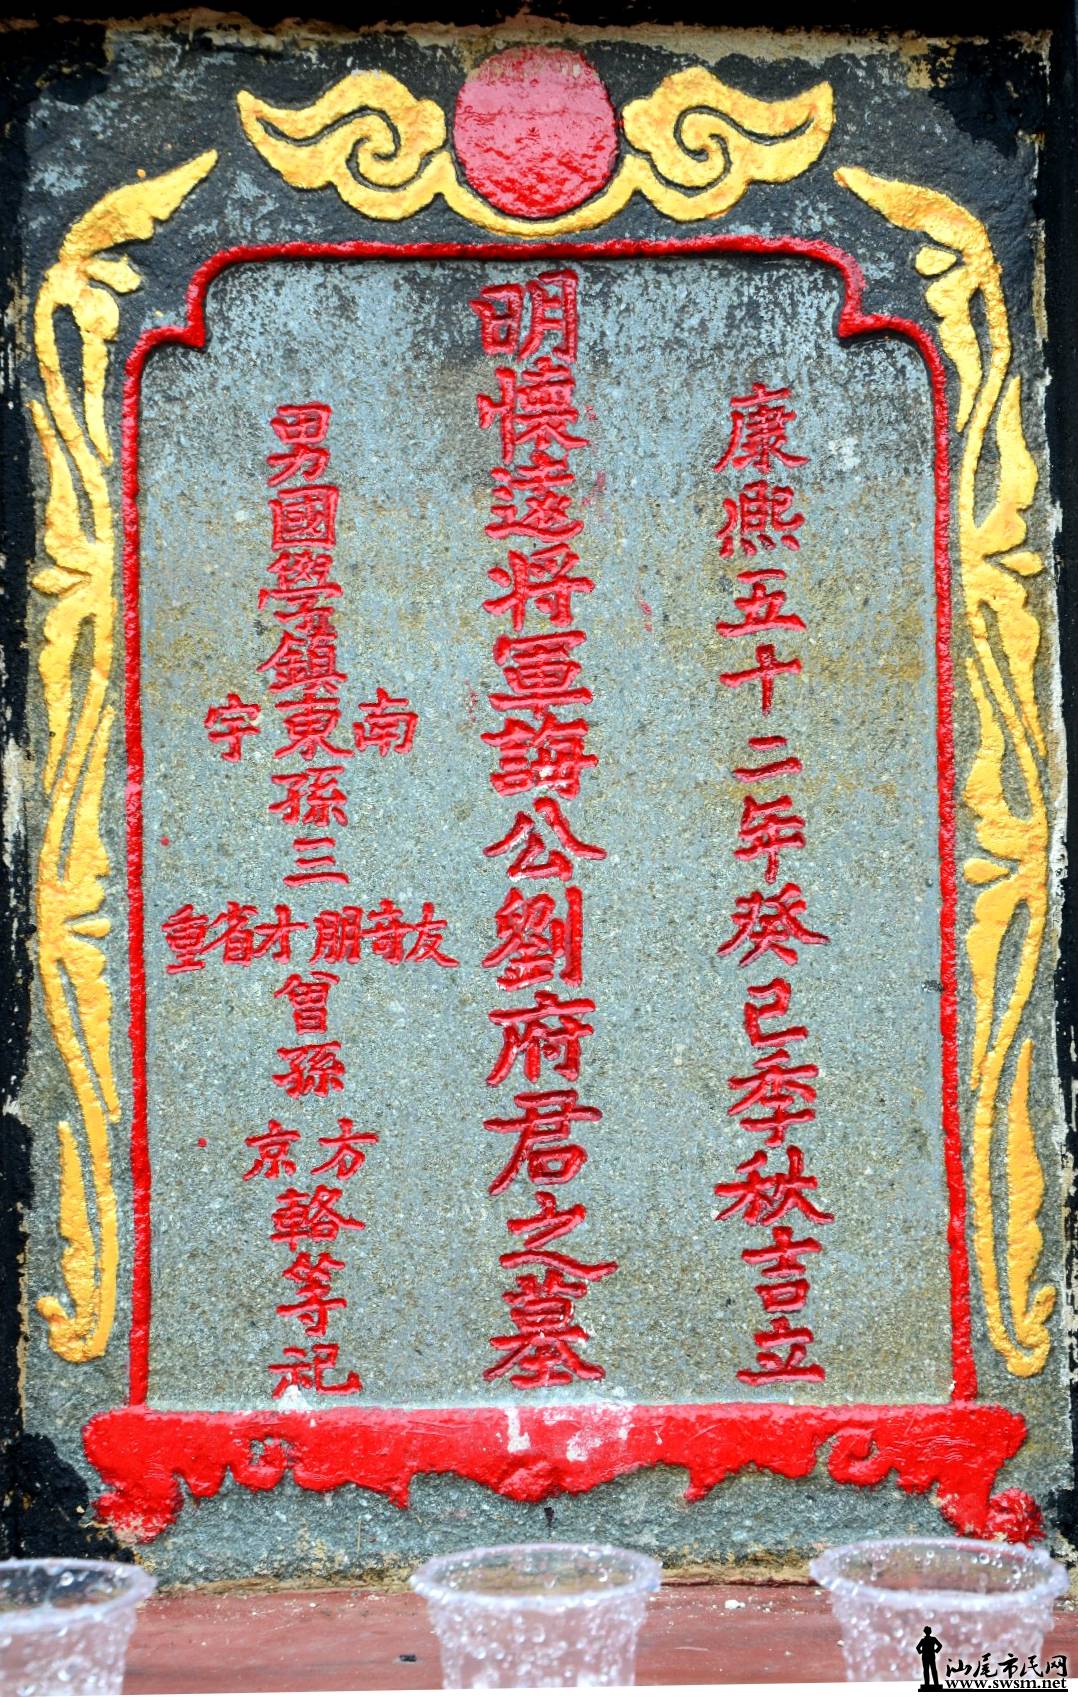 康熙五十二年癸巳季秋吉立
明懷遠将軍誨公劉府君之墓
男國學鎮南東宇孫三友奇朋才省重曾孫方京輅等祀
汕尾市民网
www.swsm.net